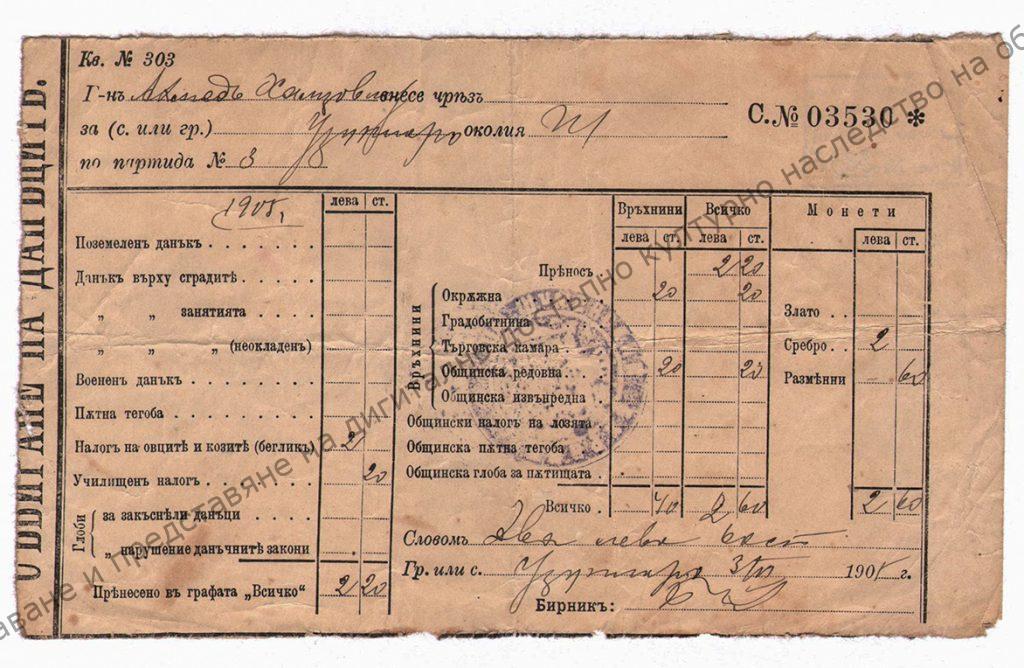 Кв. № 303
Г-нъ Ахмедъ внесе чрѣзъ
С.№ 03530 *
за (с. или гр.) околия
по партида № 3
НА ДАНЪЦИТѢ.
лева ст.
Поземленъ данъкъ
Данъкъ върху сградитѣ
„ „ занятията
„ „ „ (неокладен)
Воененъ данъкъ
Пѫтна тегоба
Налогъ на овцитѣ и козитѣ (бегликъ) 2
Училищенъ налогъ 20
Глоби
за закъснѣли данъци
„ нарушение данъчнитѣ закони
Прѣнесено въ графата „Всичко“ 2 20
Връхнини Всичко
лева ст. лева ст.
Прѣносъ 2 20
Връхнини
Окрѫжна 20 20
Градобитнина
Търговска камара
Общинска редовна 20 20
Общинска извънредна
Общински налогъ на лозята
Общинска пѫтна тегоба
Общинска глоба за пѫтищата
Всичко 40 2 60
Монети
лева ст.
Злато
Сребро 2
Размѣнни 60
2 60
Словомъ Два лева 60 ст
Гр. или с. 190 г.
Бирникъ:
и представяне на дигитално достъпно културно наследство на